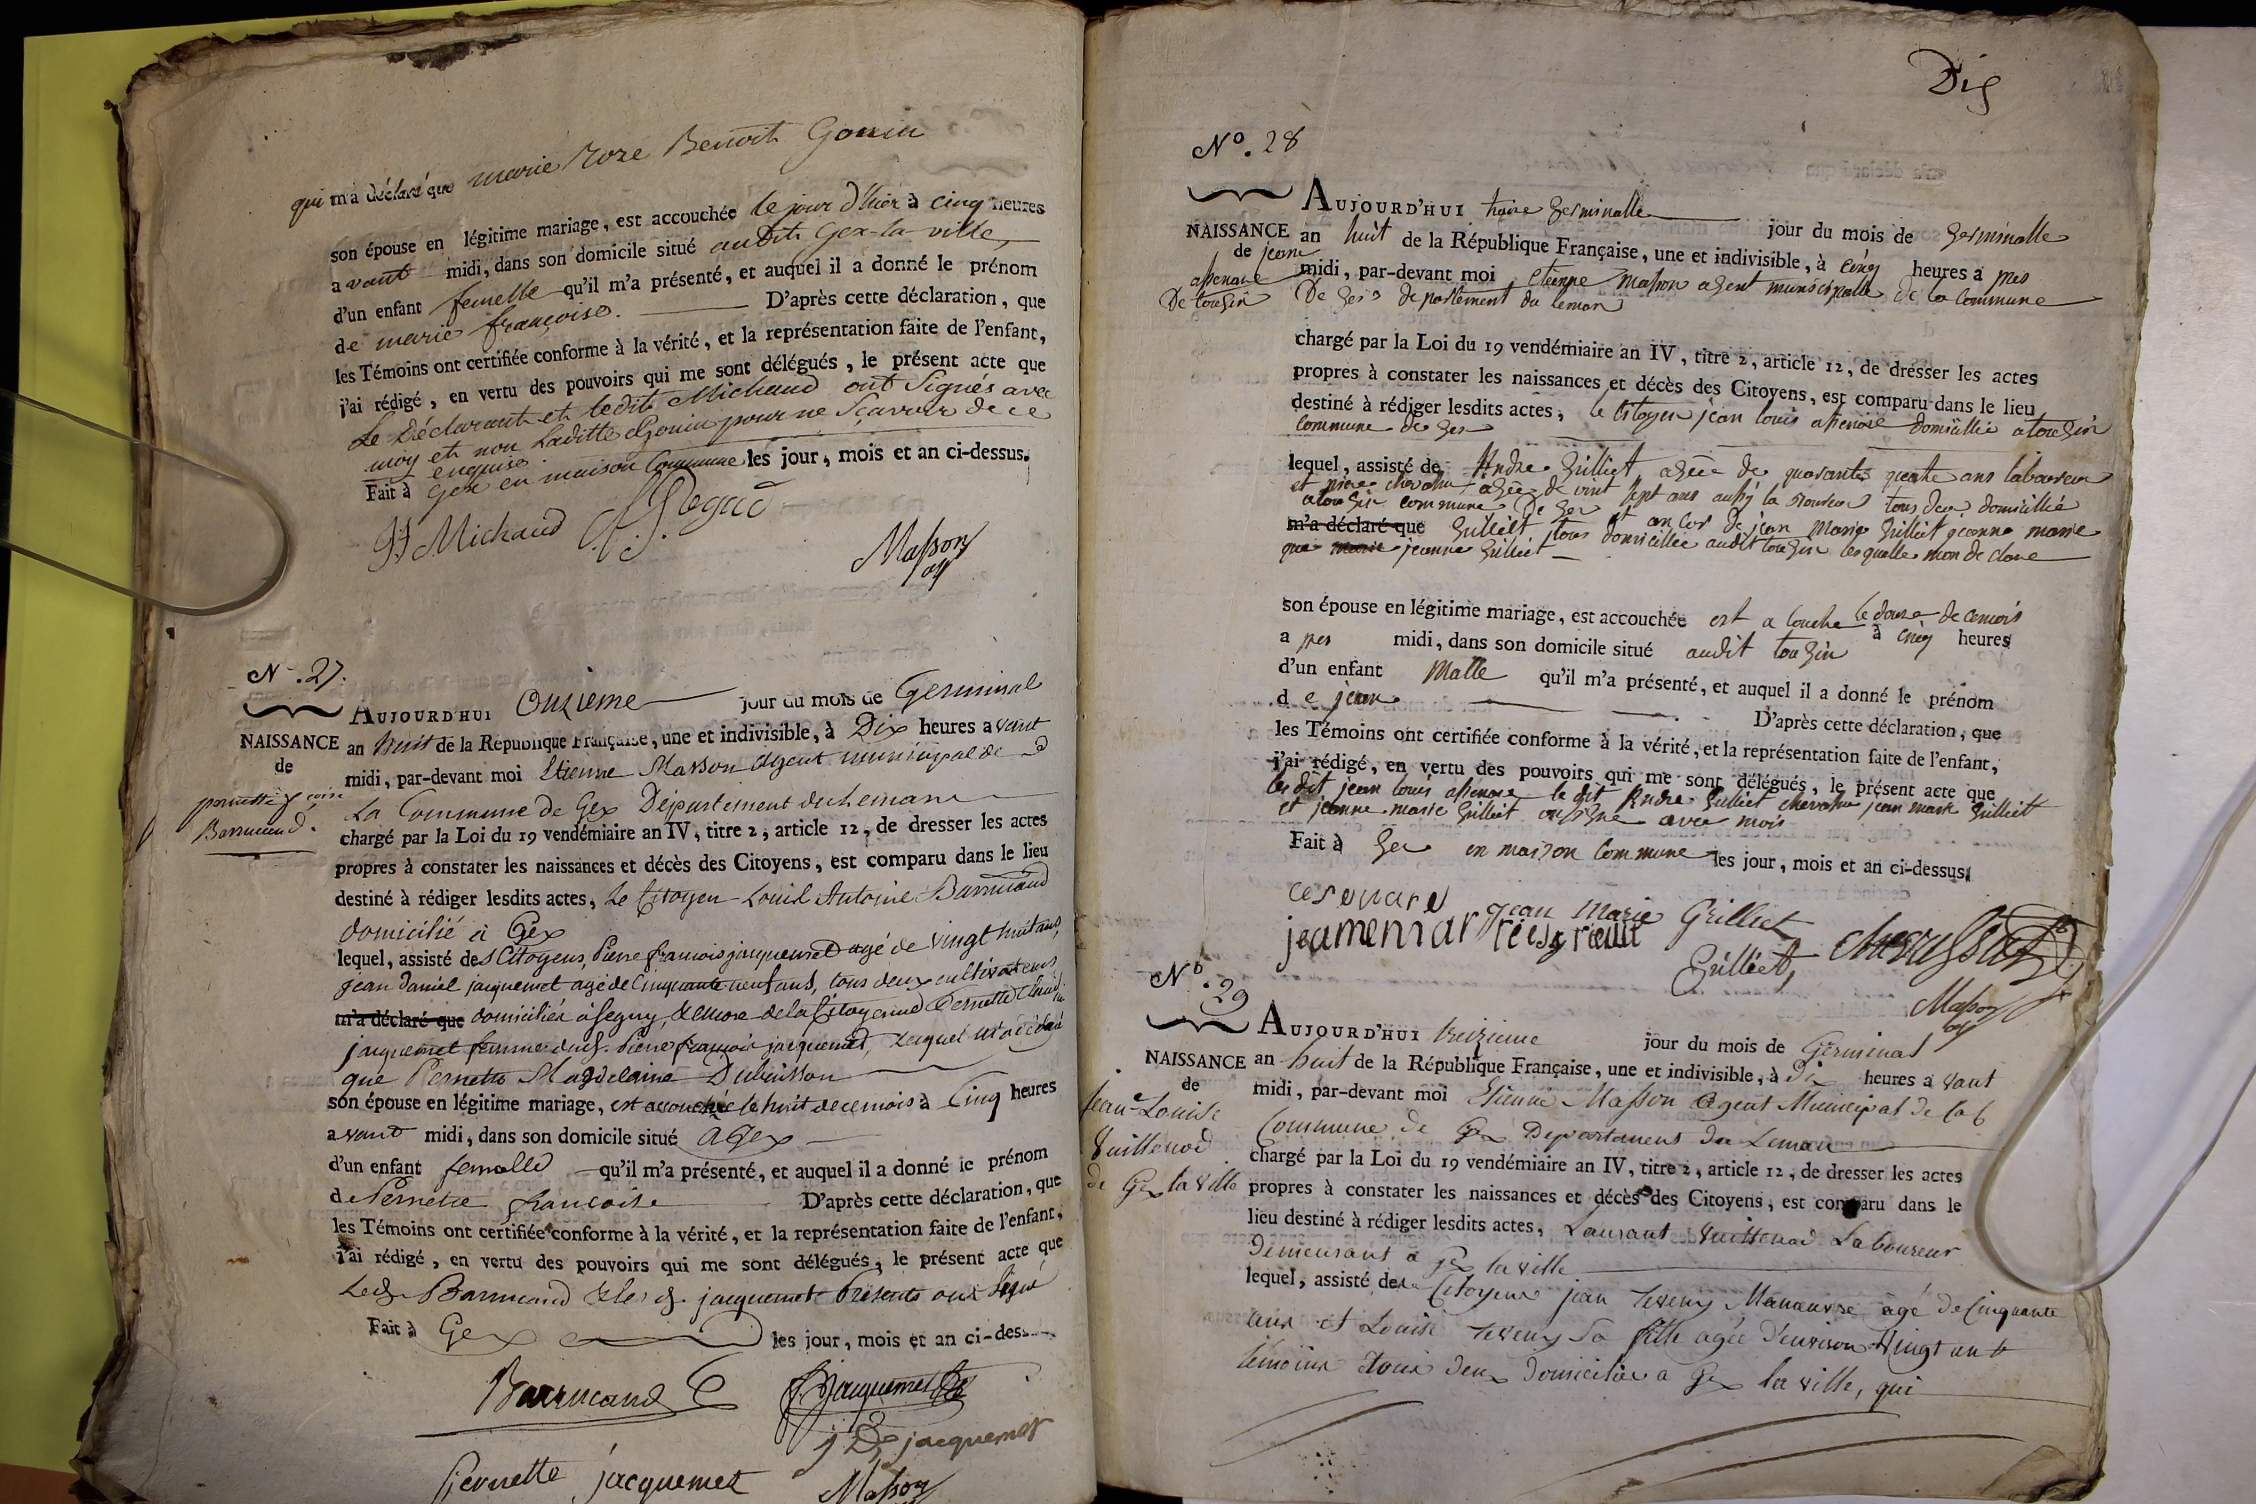 qui m'a déclaré que marie Roze Benoit Gonin
son épouse en légitime mariage, est accouchée le jour d'hier à cinq heures
avant midi, dans son domicile situé audit Gex-la-ville,
d'un enfant femelle qu'il m'a présenté, et auquel il a donné le prénom
de marie françoise. D'après cette déclaration, que
les Témoins ont certifiée conforme à la vérité, et la représentation faite de l'enfant,
j'ai rédigé, en vertu des pouvoirs qui me sont délégués, le présent acte que
Le Déclarant et ledit Michaud ont signés avec
moy et non laditte Gonin pour ne sçavoir de ce
enquise
Fait à Gex en maison Commune les jour, mois et an ci-dessus.
Michaud
Masson
No. 27.
AUJOURD'HUI Onzieme jour du mois de Germinal
NAISSANCE an huit de la République Française, une et indivisible, à Dix heures avant
de midi, par-devant moi Etienne Masson Agent municipal de
pernette françoise La Commune de Gex Département du Leman
Barmand. chargé par la Loi du 19 vendémiaire an IV, titre 2, article 12, de dresser les actes
propres à constater les naissances et décès des Citoyens, est comparu dans le lieu
destiné à rédiger lesdits actes, le Citoyen Louis Antoine
domicilié à Gex
lequel, assisté des Citoyens, Pierre françois jacquemet agé de vingt huit ans,
jean daniel jacquemet agé de Cinquante neuf ans, tous deux cultivateurs
m'a déclaré que domiciliés à Segny, de la Citoyenne Pernette
jacquemet femme dud. Pierre françois jacquemet, Lequel m'a déclaré
que Pernette Magdelaine Dubuisson
son épouse en légitime mariage, est accouchée le huit de ce mois à Cinq heures
avant midi, dans son domicile situé à Gex
d'un enfant femelle qu'il m'a présenté, et auquel il a donné le prénom
de Pernette françoise D'après cette déclaration, que
les Témoins ont certifiée conforme à la vérité, et la représentation faite de l'enfant,
j'ai rédigé, en vertu des pouvoirs qui me sont délégués, le présent acte que
jacquemet présents ont signé
Fait à Gex les jour, mois et an ci-dess
jacquemet
j D jacquemet
Pernette jacquemet Masson
Dix
No. 28
AUJOURD'HUI treize germinalle jour du mois de germinalle
NAISSANCE an huit de la République Française, une et indivisible, à cinq heures a pres
de jean midi, par-devant moi etienne masson agent municipalle de la commune
De tougin De gex departement du leman
chargé par la Loi du 19 vendémiaire an IV, titre 2, article 12, de dresser les actes
propres à constater les naissances et décès des Citoyens, est comparu dans le lieu
destiné à rédiger lesdits actes, le Citoyen jean louis domicillié a tougin
commune de gex
lequel, assisté de Andre Grilliet, agée de quarante ans laboureur
et agée de vint sept ans tous deu domicillié
a tougin commune de gex
m'a déclaré que Grilliet tous domicillée audit tougin lesquelle mon declare
que marie jeanne Grilliet
son épouse en légitime mariage, est accouchée est a couche le douze de ce mois
a pres midi, dans son domicile situé audit tougin à cinq heures
d'un enfant malle qu'il m'a présenté, et auquel il a donné le prénom
de jean D'après cette déclaration, que
les Témoins ont certifiée conforme à la vérité, et la représentation faite de l'enfant,
j'ai rédigé, en vertu des pouvoirs qui me sont délégués, le présent acte que
les dit jean louis le dit Andre Grilliet jean marie Grilliet
et jeanne marie Grilliet on signe avec moi
Fait à gex en maison commune les jour, mois et an ci-dessus.
jean marie Grilliet
Grilliet
Masson
No. 29
AUJOURD'HUI treizieme jour du mois de Germinal
NAISSANCE an huit de la République Française, une et indivisible, à Dix heures avant
de midi, par-devant moi Etienne Masson Agent Municipal de la
Jeane Louise Commune de Gex Departement du Leman
Vuillenod chargé par la Loi du 19 vendémiaire an IV, titre 2, article 12, de dresser les actes
de Gex la ville propres à constater les naissances et décès des Citoyens, est comparu dans le
lieu destiné à rédiger lesdits actes, Laurant Vuillenod Laboureur
demeurant à Gex la ville
lequel, assisté des Citoyens jean Manœuvre agé de Cinquante
ans et Louise sa fille agée d'environ vingt ans
témoins tous deux domiciliés à Gex la ville, qui